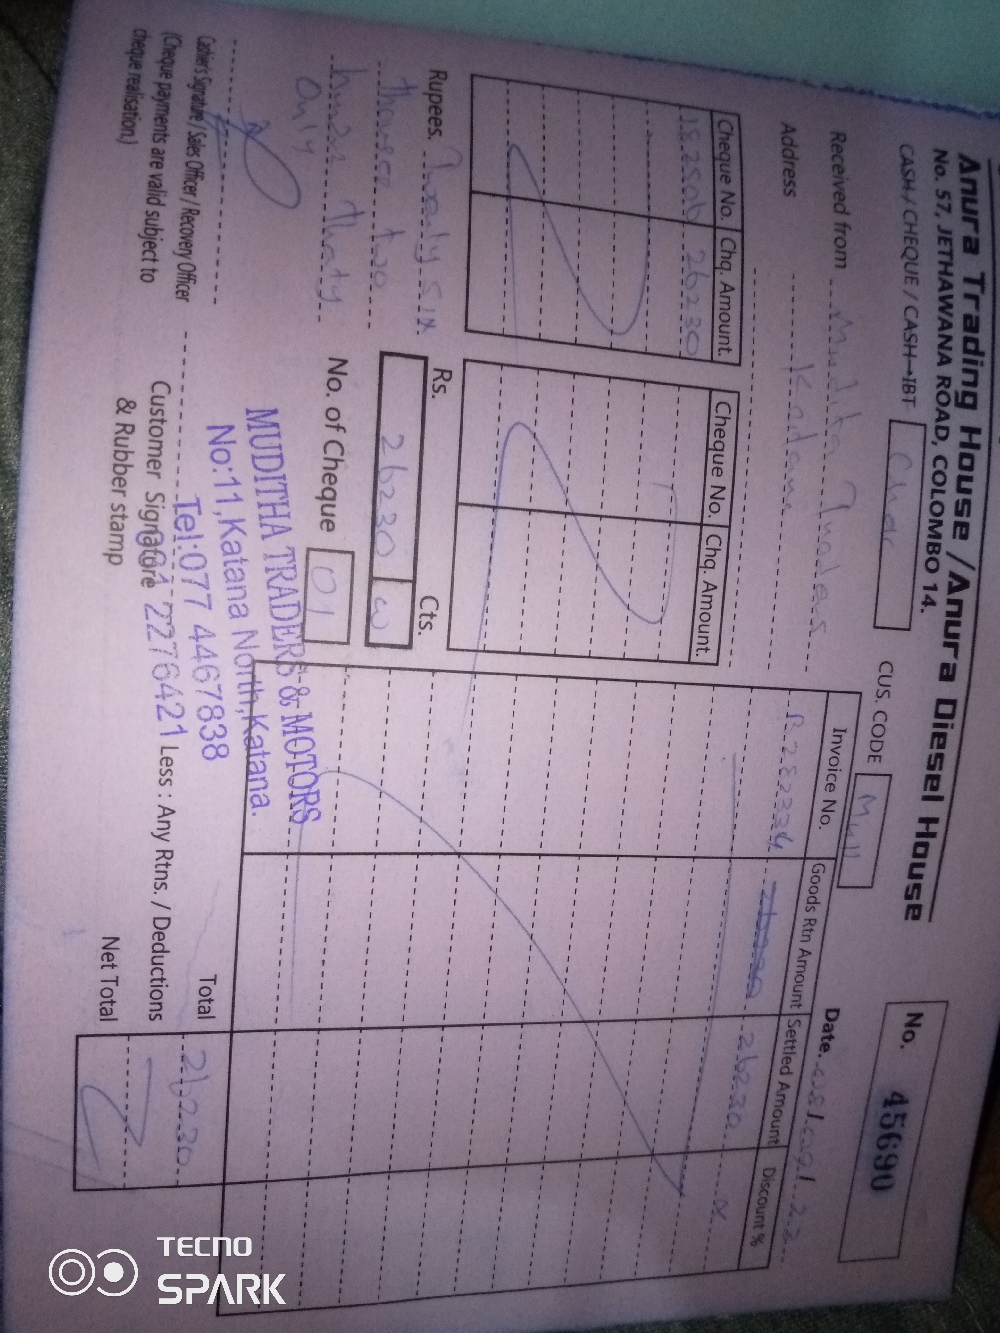 Anura Trading House / Anura Diesel House
No. 57, JETHAWANA ROAD, COLOMBO 14.
No. 45690
CASH / CHEQUE / CASH→IBT
CUS. CODE
Date. 08/09/23
Received from Muditha
Address Katana
Cheque No. Chq. Amount. Cheque No. Chq. Amount.
182506 26230
Invoice No. Goods Rtn Amount Settled Amount Discount %
R282334 26230 26230
Rupees. Twenty six
two
only
Rs. Cts.
26230
No. of Cheque 01
MUDITHA TRADERS & MOTORS
No:11,Katana North,Katana.
Tel:077 4467838
2276421
Cashier's Signature / Sales Officer / Recovery Officer
(Cheque payments are valid subject to
cheque realisation.)
Customer Signature
& Rubber stamp
Total 26230
Less : Any Rtns. / Deductions
Net Total
TECNO
SPARK